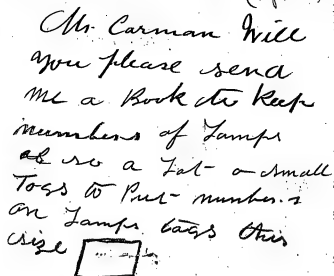 Mr. Carman Will
you please send
me a Book to Keep
numbers of Lamps
also a Lot of small
Tags to Put numbers
on Lamps tags this
size